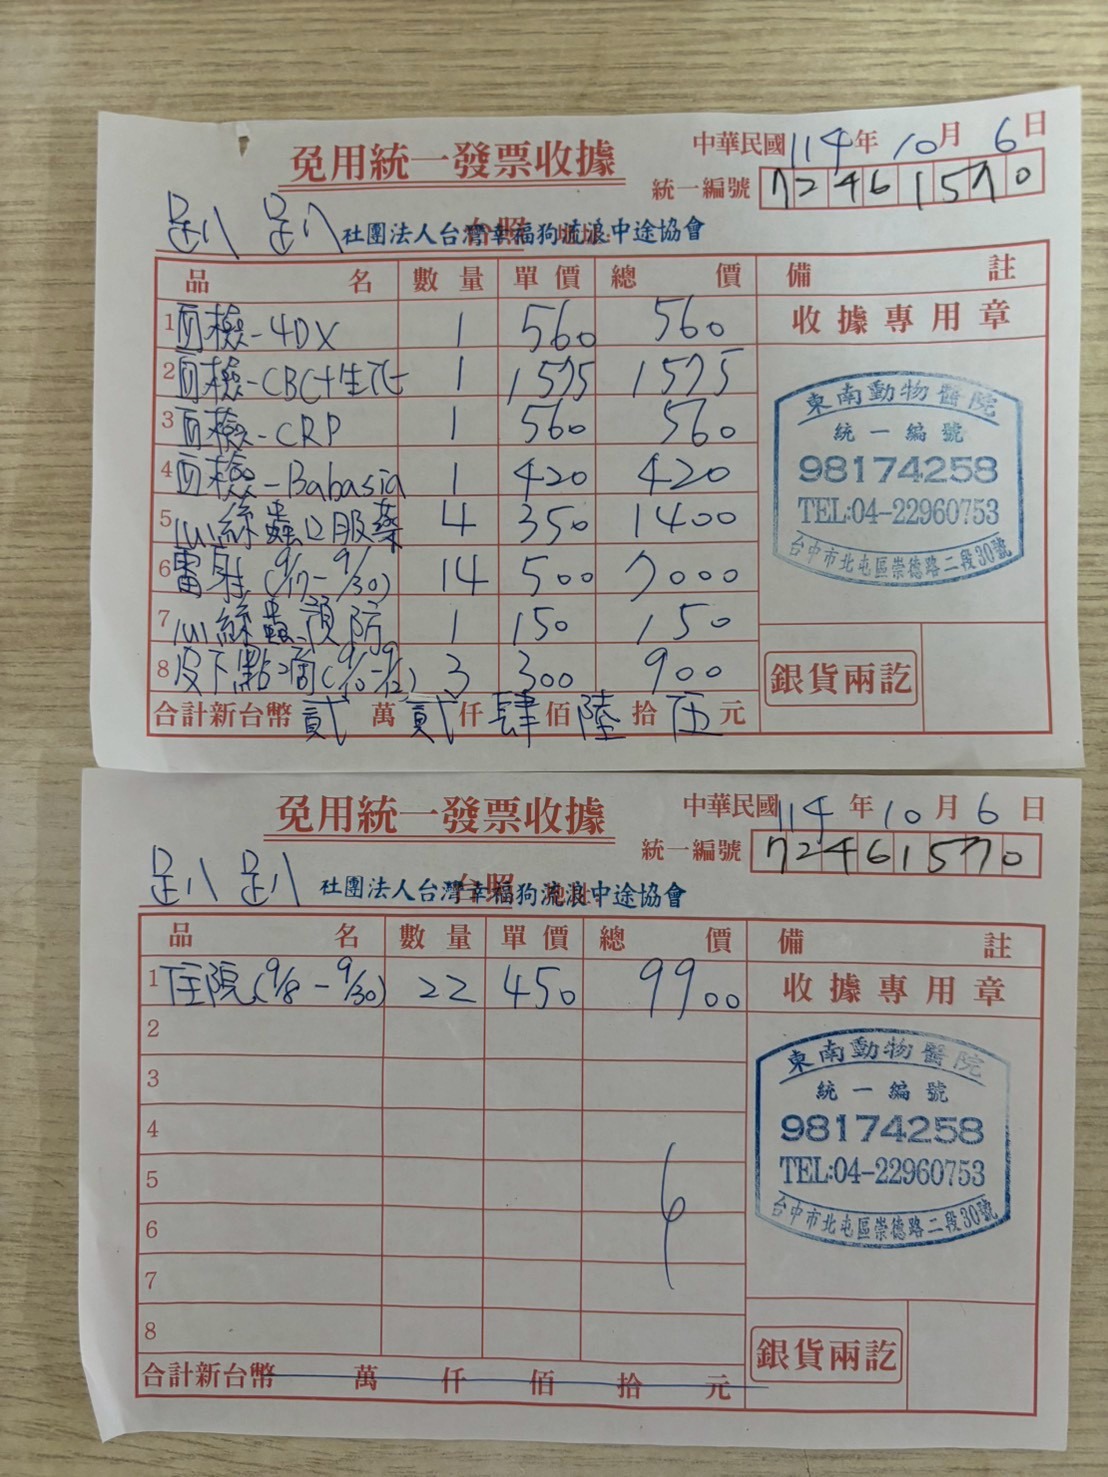 免用統一發票收據
中華民國114年10月6日
統一編號 72461570
趴趴 社團法人台灣幸福狗流浪中途協會
台照
品名 數量 單價 總價 備註
1 血檢-4DX 1 560 560 收據專用章
2 血檢-CBC+生化 1 1575 1575
3 血檢-CRP 1 560 560
4 血檢-Babasia 1 420 420
5 心絲蟲口服藥 4 350 1400
6 雷射(9/17-9/30) 14 500 7000
7 心絲蟲預防 1 150 150
8 皮下點滴(9/10-9/12) 3 300 900
合計新台幣 貳萬貳仟肆佰陸拾伍元
東南動物醫院
統一編號
98174258
TEL:04-22960753
台中市北屯區崇德路二段30號
銀貨兩訖
免用統一發票收據
中華民國114年10月6日
統一編號 72461570
趴趴 社團法人台灣幸福狗流浪中途協會
台照
品名 數量 單價 總價 備註
1 住院(9/8-9/30) 22 450 9900 收據專用章
2
3
4
5
6
7
8
合計新台幣 萬 仟 佰 拾 元
東南動物醫院
統一編號
98174258
TEL:04-22960753
台中市北屯區崇德路二段30號
銀貨兩訖